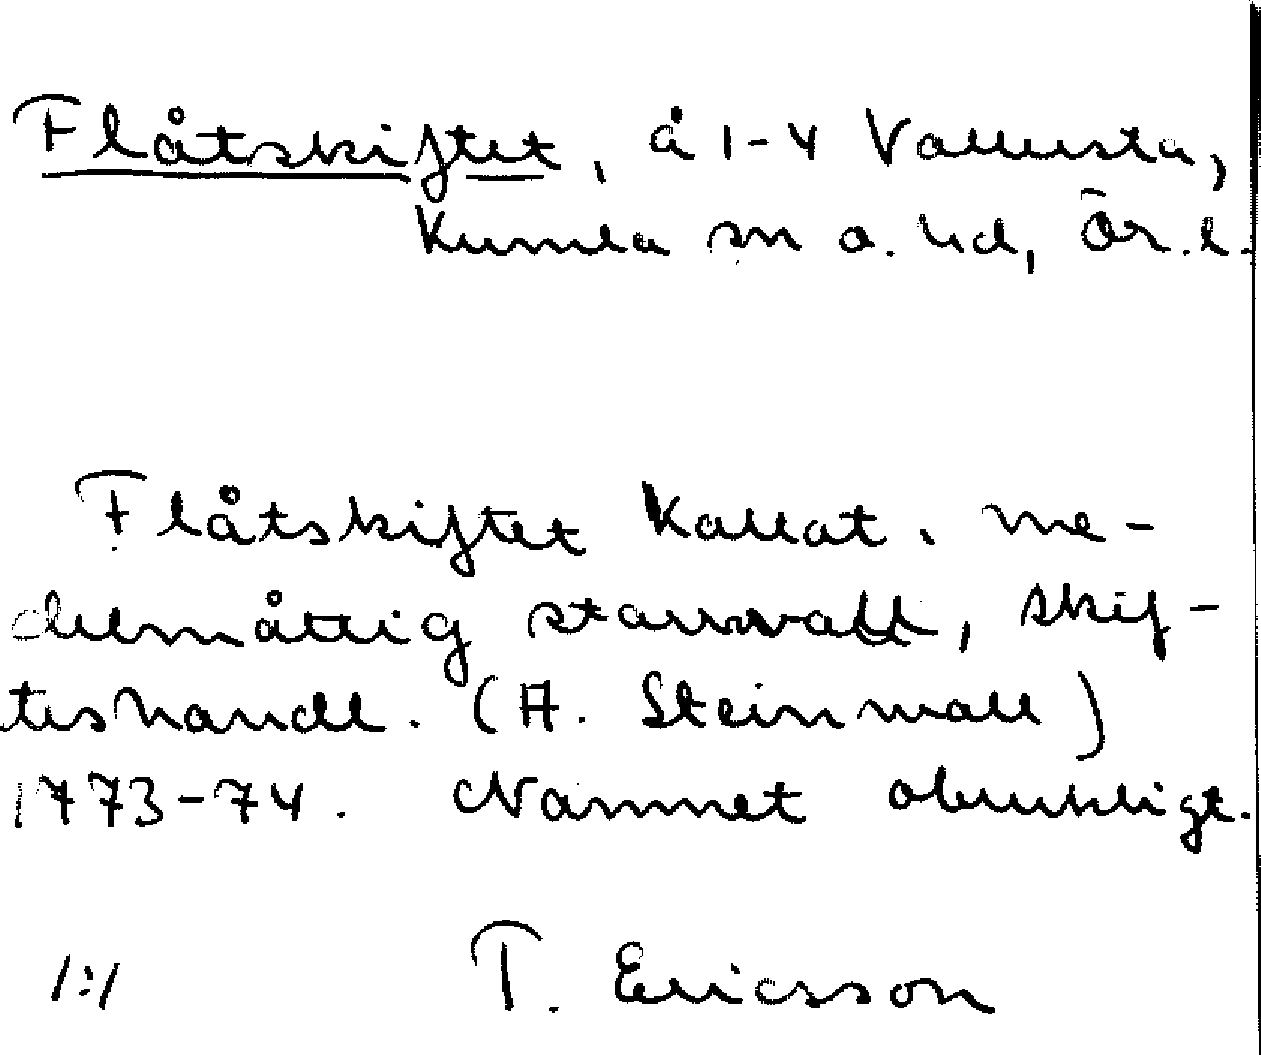 Flåtskiftet, å 1-4 Vallersta,
Kumla sn o. hd, Ör. l.
Flåtskiftet Kallat. me-
delmåttig starrvall, skif-
teshandl. (A. Steinmall)
1773-74. Namnet obrukligt.
1:1 T. Ericsson